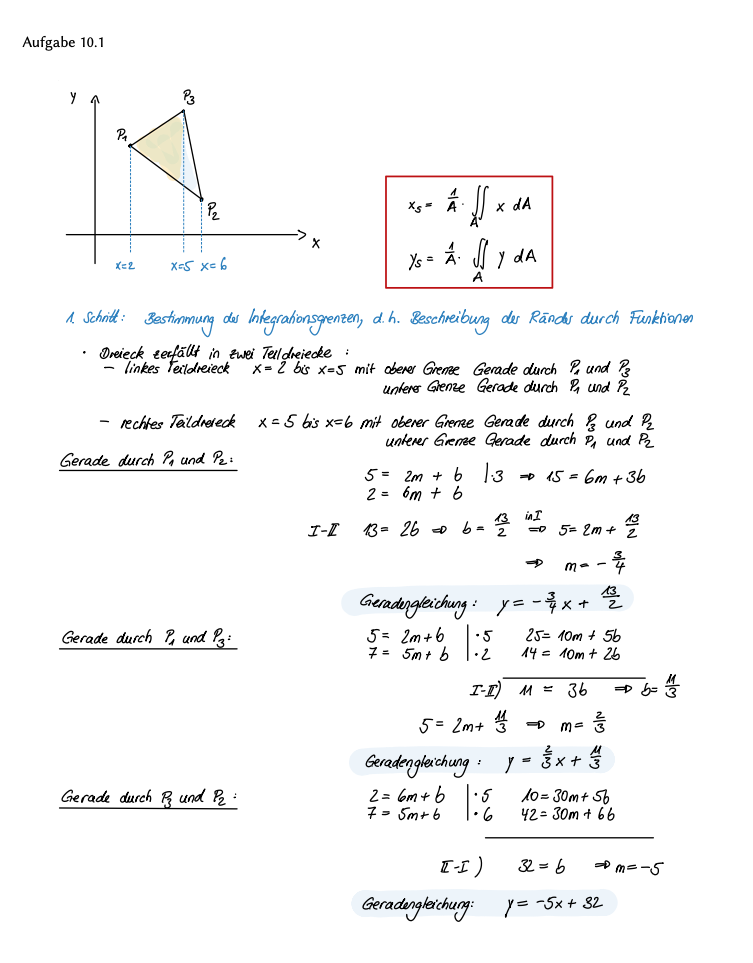 Aufgabe 10.1
y
P₃
P₁
P₂
x
x=2 x=5 x=6
x_S = 1/A · ∬_A x dA
y_S = 1/A · ∬_A y dA
1. Schritt: Bestimmung der Integrationsgrenzen, d.h. Beschreibung des Randes durch Funktionen
· Dreieck zerfällt in zwei Teildreiecke :
– linkes Teildreieck x = 2 bis x=5 mit oberer Grenze Gerade durch P₁ und P₃
untere Grenze Gerade durch P₁ und P₂
– rechtes Teildreieck x = 5 bis x=6 mit oberer Grenze Gerade durch P₃ und P₂
unterer Grenze Gerade durch P₁ und P₂
Gerade durch P₁ und P₂:
5 = 2m + b |·3 ⇒ 15 = 6m + 3b
2 = 6m + b
I-II 13 = 2b ⇒ b = 13/2 in I ⇒ 5 = 2m + 13/2
⇒ m = - 3/4
Geradengleichung : y = - 3/4 x + 13/2
Gerade durch P₁ und P₃:
5 = 2m+b |·5 25 = 10m + 5b
7 = 5m + b |·2 14 = 10m + 2b
I-II) 11 = 3b ⇒ b = 11/3
5 = 2m + 11/3 ⇒ m = 2/3
Geradengleichung : y = 2/3 x + 11/3
Gerade durch P₃ und P₂ :
2 = 6m + b |·5 10 = 30m + 5b
7 = 5m + b |·6 42 = 30m + 6b
II-I ) 32 = b ⇒ m = -5
Geradengleichung: y = -5x + 32